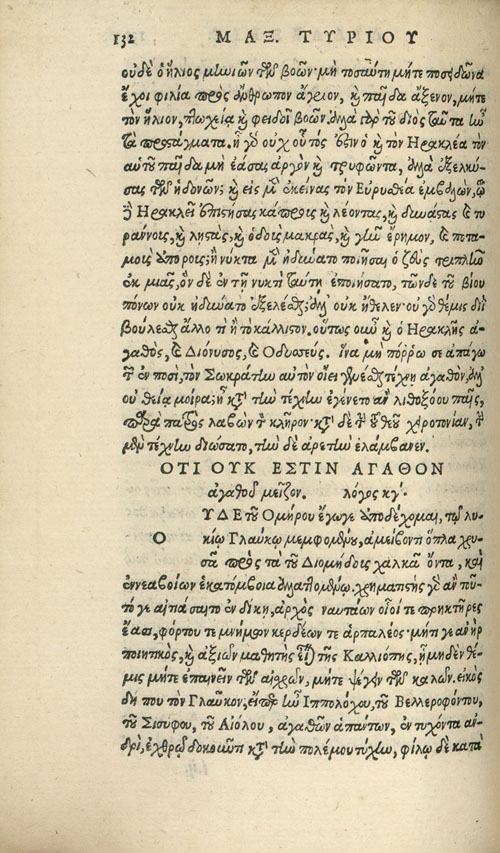 132 ΜΑΞ. ΤΥΡΙΟΥ
οὐδὲ ὁ ἥλιος μηνιῶν τῶν βοῶν· μὴ τοσαύτη μήτε ποσειδῶνα
ἔχοι φιλία πρὸς ἄνθρωπον ἄγριον, καὶ παῖδα ἄξενον, μήτε
τὸν ἥλιον, πτωχεία καὶ φειδοῖ βοῶν, ἀλλὰ ὑπὲρ τοῦ διὸς ταῦτα ἦν
τὰ προστάγματα, ἢ γὰρ οὐχ οὗτός ἐστιν ὁ καὶ τὸν Ἡρακλέα τὸν
αὑτοῦ παῖδα μὴ ἐάσας ἀργὸν καὶ τρυφῶντα, ἀλλὰ ἐξελκύ-
σας τῶν ἡδονῶν; καὶ εἰς μὲν ἐκείνας τὸν Εὐρυσθέα ἐμβαλὼν, τῷ
δὲ Ἡρακλεῖ ἐπιστήσας κάπρους καὶ λέοντας, καὶ δυνάστας καὶ τυ
ράννοις, καὶ λῃστὰς, καὶ ὁδοὺς μακρὰς, καὶ γῆν ἔρημον, καὶ ποτα-
μοὺς ἀπόρους; ἢ νύκτα μὲν ἠδύνατο ποιῆσαι ὁ ζεὺς τριπλῆν
ἐκ μιᾶς, ὃν δὲ ἐν τῇ νυκτὶ ταύτῃ ἐποιήσατο, τῶνδε τοῦ βίου
πόνων οὐκ ἠδύνατο ἐξελέσθαι; ἀλλ' οὐκ ἤθελεν· οὐ γὰρ θέμις διῒ
βούλεσθαι ἄλλο τι ἢ τὸ κάλλιστον. οὕτως οὖν καὶ ὁ Ἡρακλῆς ἀ-
γαθὸς, καὶ Διόνυσος, καὶ Ὀδυσσεύς. ἵνα μὴ πόῤῥω σε ἀπάγω
τῶν ἐν ποσὶ, τὸν Σωκράτην αὐτὸν οἴει γενέσθαι τέχνῃ ἀγαθὸν, ἀλλ'
οὐ θείᾳ μοίρᾳ; ἢ κατὰ μὲν τέχνην ἐγένετο ἂν λιθοξόου παῖς,
παρὰ πατρὸς λαβὼν τὸν κλῆρον· κατὰ δὲ τὴν τοῦ θεοῦ χειροτονίαν, τὴν
μὲν τέχνην διώσατο, τὴν δὲ ἀρετὴν ἐλάμβανεν.
ΟΤΙ ΟΥΚ ΕΣΤΙΝ ΑΓΑΘΟΝ
ἀγαθοῦ μεῖζον. λόγος κγ'.
ΟΥΔΕ τοῦ Ὁμήρου ἔγωγε ἀποδέχομαι, τῷ λυ-
κίῳ Γλαύκῳ μεμφομένου, ἀμείβοντι ὅπλα χρυ-
σᾶ πρὸς τὰ τοῦ Διομήδους χαλκᾶ ὄντα, καὶ
ἐννεαβοίων ἑκατόμβοια ἀλλαττομένῳ. χρηματιστὴς γὰρ ἂν που-
τό γε αἰτιάσαιτο ἐν δίκῃ, ἀρχὸς ναυτάων οἵοι τε πρηκτῆρες
ἔασι, φόρτου τε μνήμων κερδέων τε ἁρπαλέος· μήτι γε ἀνὴρ
ποιητικὸς, καὶ ἀξιῶν μαθητὴς εἶναι τῆς Καλλιόπης, ᾗ μηδὲν θέ-
μις μήτε ἐπαινεῖν τῶν αἰσχρῶν, μήτε ψέγειν τῶν καλῶν. εἰκὸς
δή που τὸν Γλαῦκον, εἴπερ ἦν Ἱππολόχου, τοῦ Βελλεροφόντου,
τοῦ Σισύφου, τοῦ Αἰόλου, ἀγαθῶν ἁπάντων, ἐντυχόντα ἀν-
δρὶ, ἐχθρῷ δοκοῦντι κατὰ τὴν πολέμου τύχην, φίλῳ δὲ κατὰ